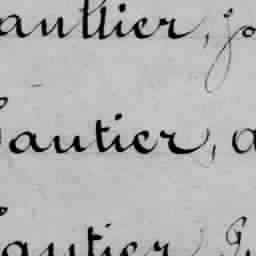 aultier, jo
Gautier, a
Gautier